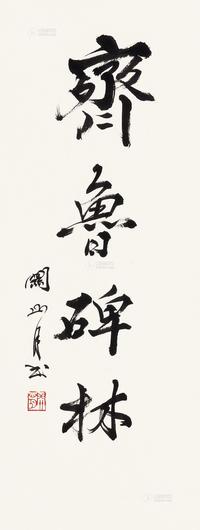 齊魯碑林
關山月书